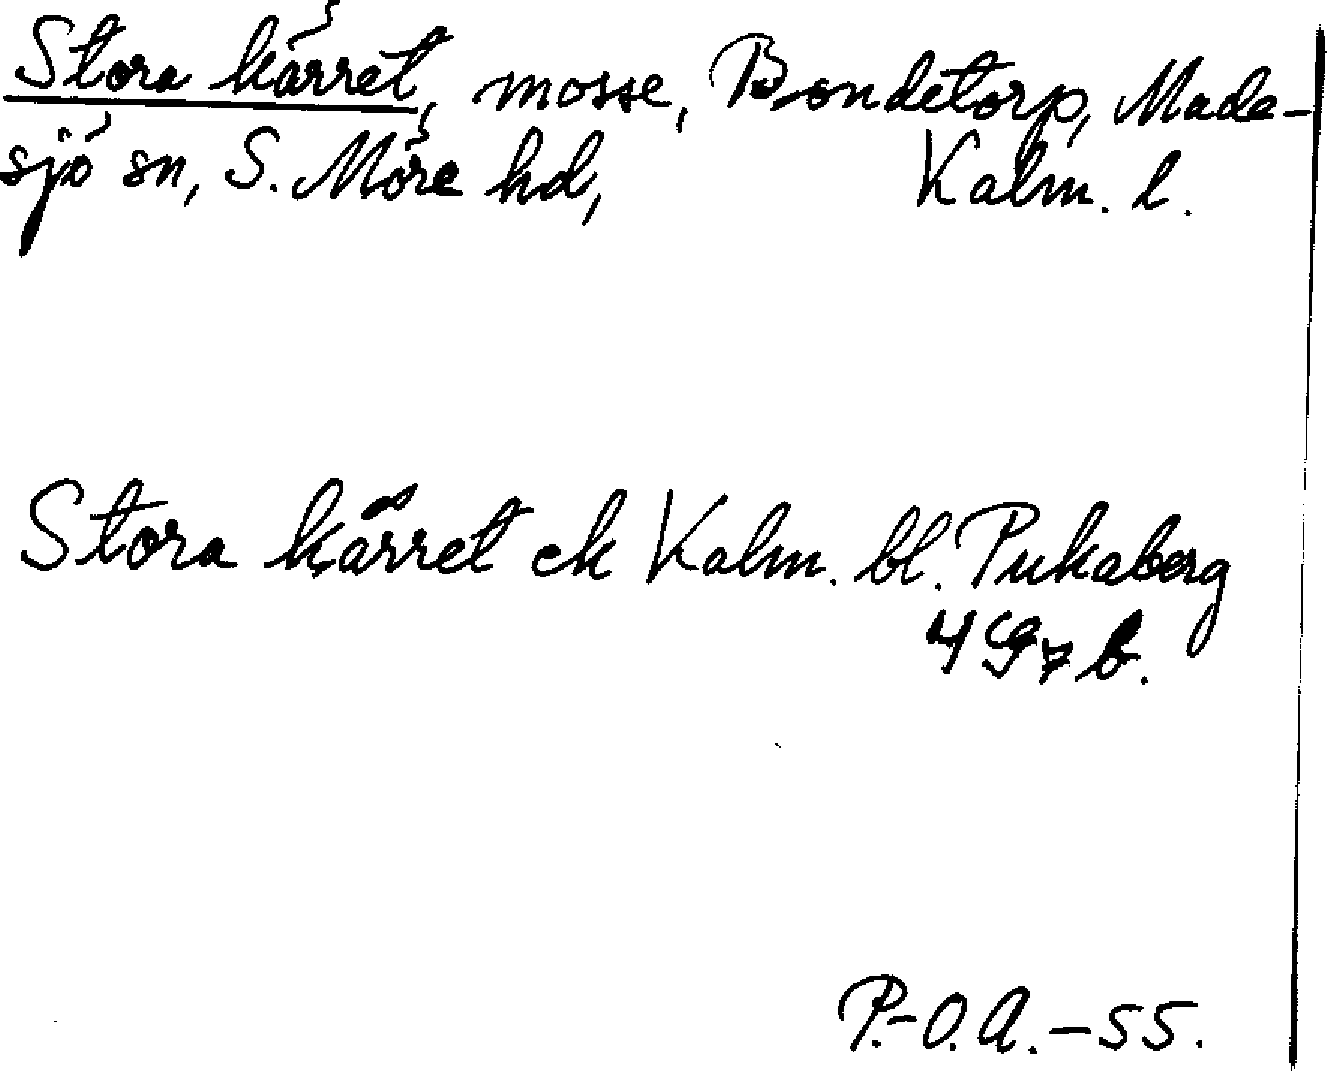 Stora kärret, mosse, Bondetorp, Made-
sjö sn, S. Möre hd, Kalm. l.
Stora kärret ek Kalm. bl. Pukaberg
4 G 7 b.
P.-O.A.-55.